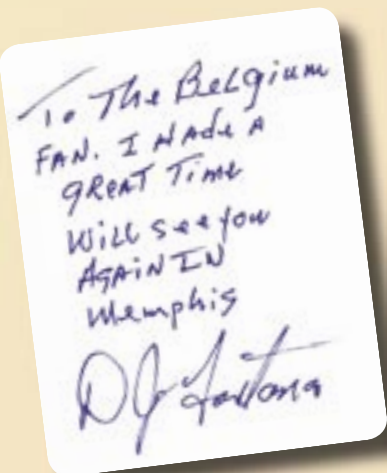 To The Belgium
FAN. I Made A
gReaT Time
Will see you
AgAiN IN
Memphis
DJ Fontana